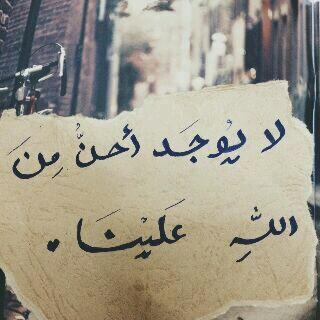 لا يُوجَد أحنُّ مِنَ
اللهِ عَلَيْنَا.